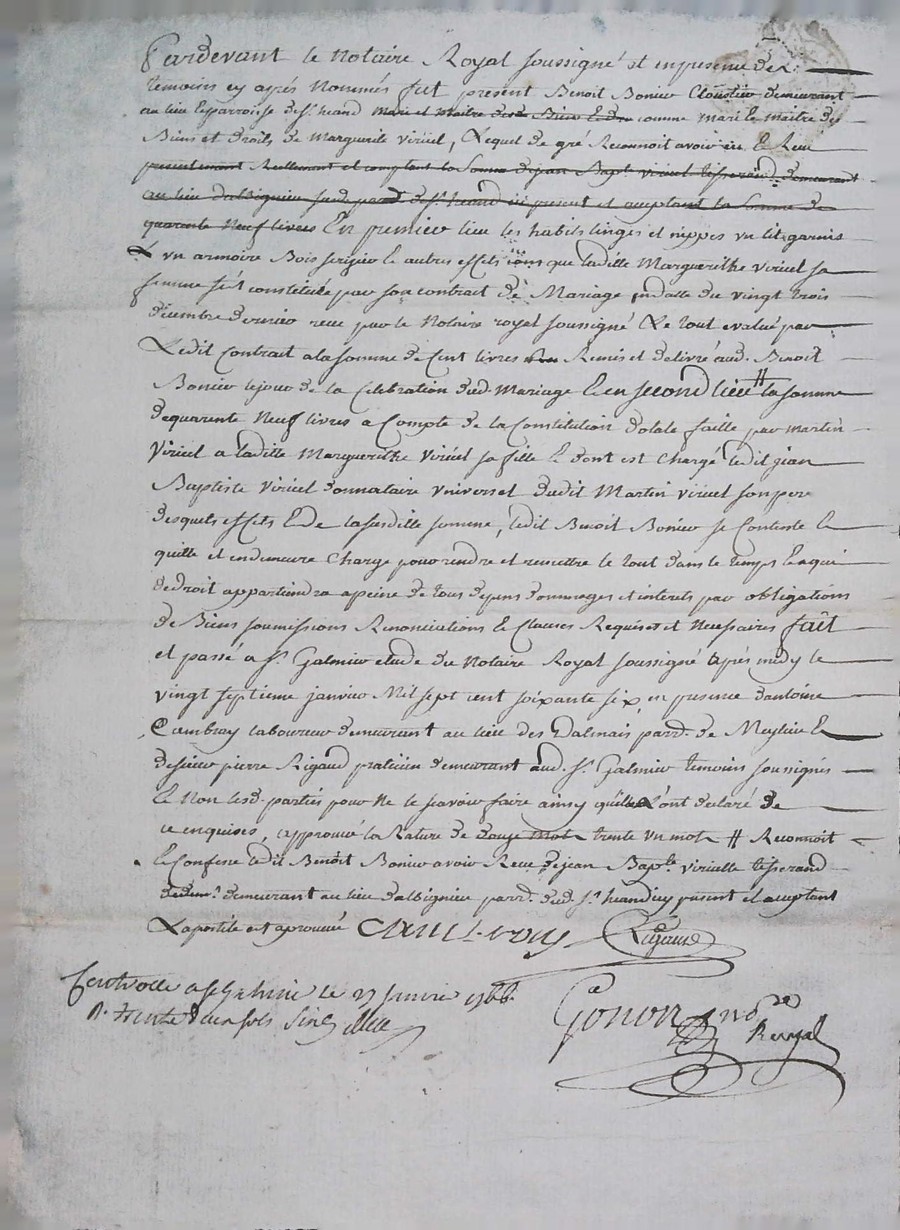 Pardevant le Notaire Royal soussigné et en presence des
temoins cy après Nommés fut present Benoit Bonier Cloutier demeurant
au lieu et parroisse de st. heand Mari et maitre des Biens et dr comme Mari et maitre des
Biens et Droits de Marguerite viriel, Lequel de gré Reconnoit avoir eu et Reçu
presentement Reellement et comptant la Somme de jean Bapte viriel tisserand demeurant
au lieu d'albignieu susd. parr de st. heand ici present et acceptant la somme de
quarante Neuf livres En premier lieu les habits linges et nippes un lit garnis
& un armoire Bois serizier et autres effets que laditte Marguerithe viriel sa
femme s'est constituée par son contrat de Mariage en datte du vingt trois
décembre dernier reçu par le Notaire royal soussigné Le tout evalué par
Ledit Contrait a la somme de Cent livres Remis et delivré aud. Benoit
Bonier le jour de la Celebration dud. Mariage Et en second lieu # la somme
de quarente Neuf livres a Compte de la Constitution dotale faitte par martin
viriel a laditte Marguerithe viriel sa fille et dont est Chargé ledit jean
Baptiste viriel donnataire universel dudit Martin viriel son pere
desquels effets Et de la susditte somme, ledit Benoit Bonier se Contente le
quitte et en demeure Chargé pour rendre et remettre le tout dans le temps Et a qui
de droit appartiendra a peine de tous depens dommages et interets par obligations
de Biens soumissions Renonciations & Clauses Requises et Necessaires fait
et passé a St. Galmier etude du Notaire Royal soussigné après midy le
vingt septieme janvier Mil sept cent soixante six, en presence d'antoine
Cambray laboureur demeurant au lieu des Dalmais parr. de Meylieu &
de sieur pierre Rigaud praticien demeurant aud. St. Galmier temoins soussignés
Et Non lesd. parties pour Ne le sçavoir faire ainsy qu'elles l'ont declaré de
ce enquises, approuvé la Rature de douze mots trente un mots # Reconnoit
Et Confesse ledit Benoit Bonier avoir Reçu de jean Bapte. virielle tisserand
demeurant au lieu d'albignieu parr. dud. St. heand icy present et acceptant
L'apostile est aprouvée Rigaud
Controllé a St Galmier le 27 janvier 1766.
R. trente deux sols six
Gonon nore
Royal